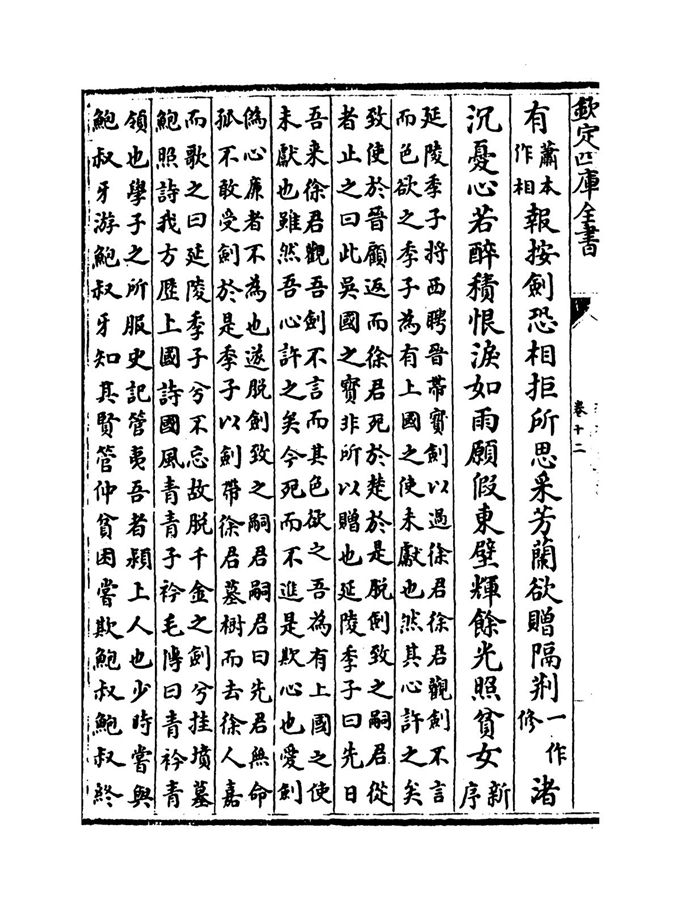 欽定四庫全書
卷十二
有蕭本作相報按劍恐相拒所思采芳蘭欲贈隔荆一作修渚
沉憂心若醉積恨淚如雨願假東壁輝餘光照貧女新序
延陵季子將西聘晉帶寶劍以過徐君徐君觀劍不言
而色欲之季子為有上國之使未獻也然其心許之矣
致使於晉顧返而徐君死於楚於是脫劍致之嗣君從
者止之曰此吳國之寶非所以贈也延陵季子曰先日
吾來徐君觀吾劍不言而其色欲之吾為有上國之使
未獻也雖然吾心許之矣今死而不進是欺心也愛劍
偽心廉者不為也遂脫劍致之嗣君嗣君曰先君無命
孤不敢受劍於是季子以劍帶徐君墓樹而去徐人嘉
而歌之曰延陵季子兮不忘故脫千金之劍兮挂墳墓
鮑照詩我方歴上國詩國風青青子衿毛傳曰青衿青
領也學子之所服史記管夷吾者潁上人也少時嘗與
鮑叔牙游鮑叔牙知其賢管仲貧困嘗欺鮑叔鮑叔終